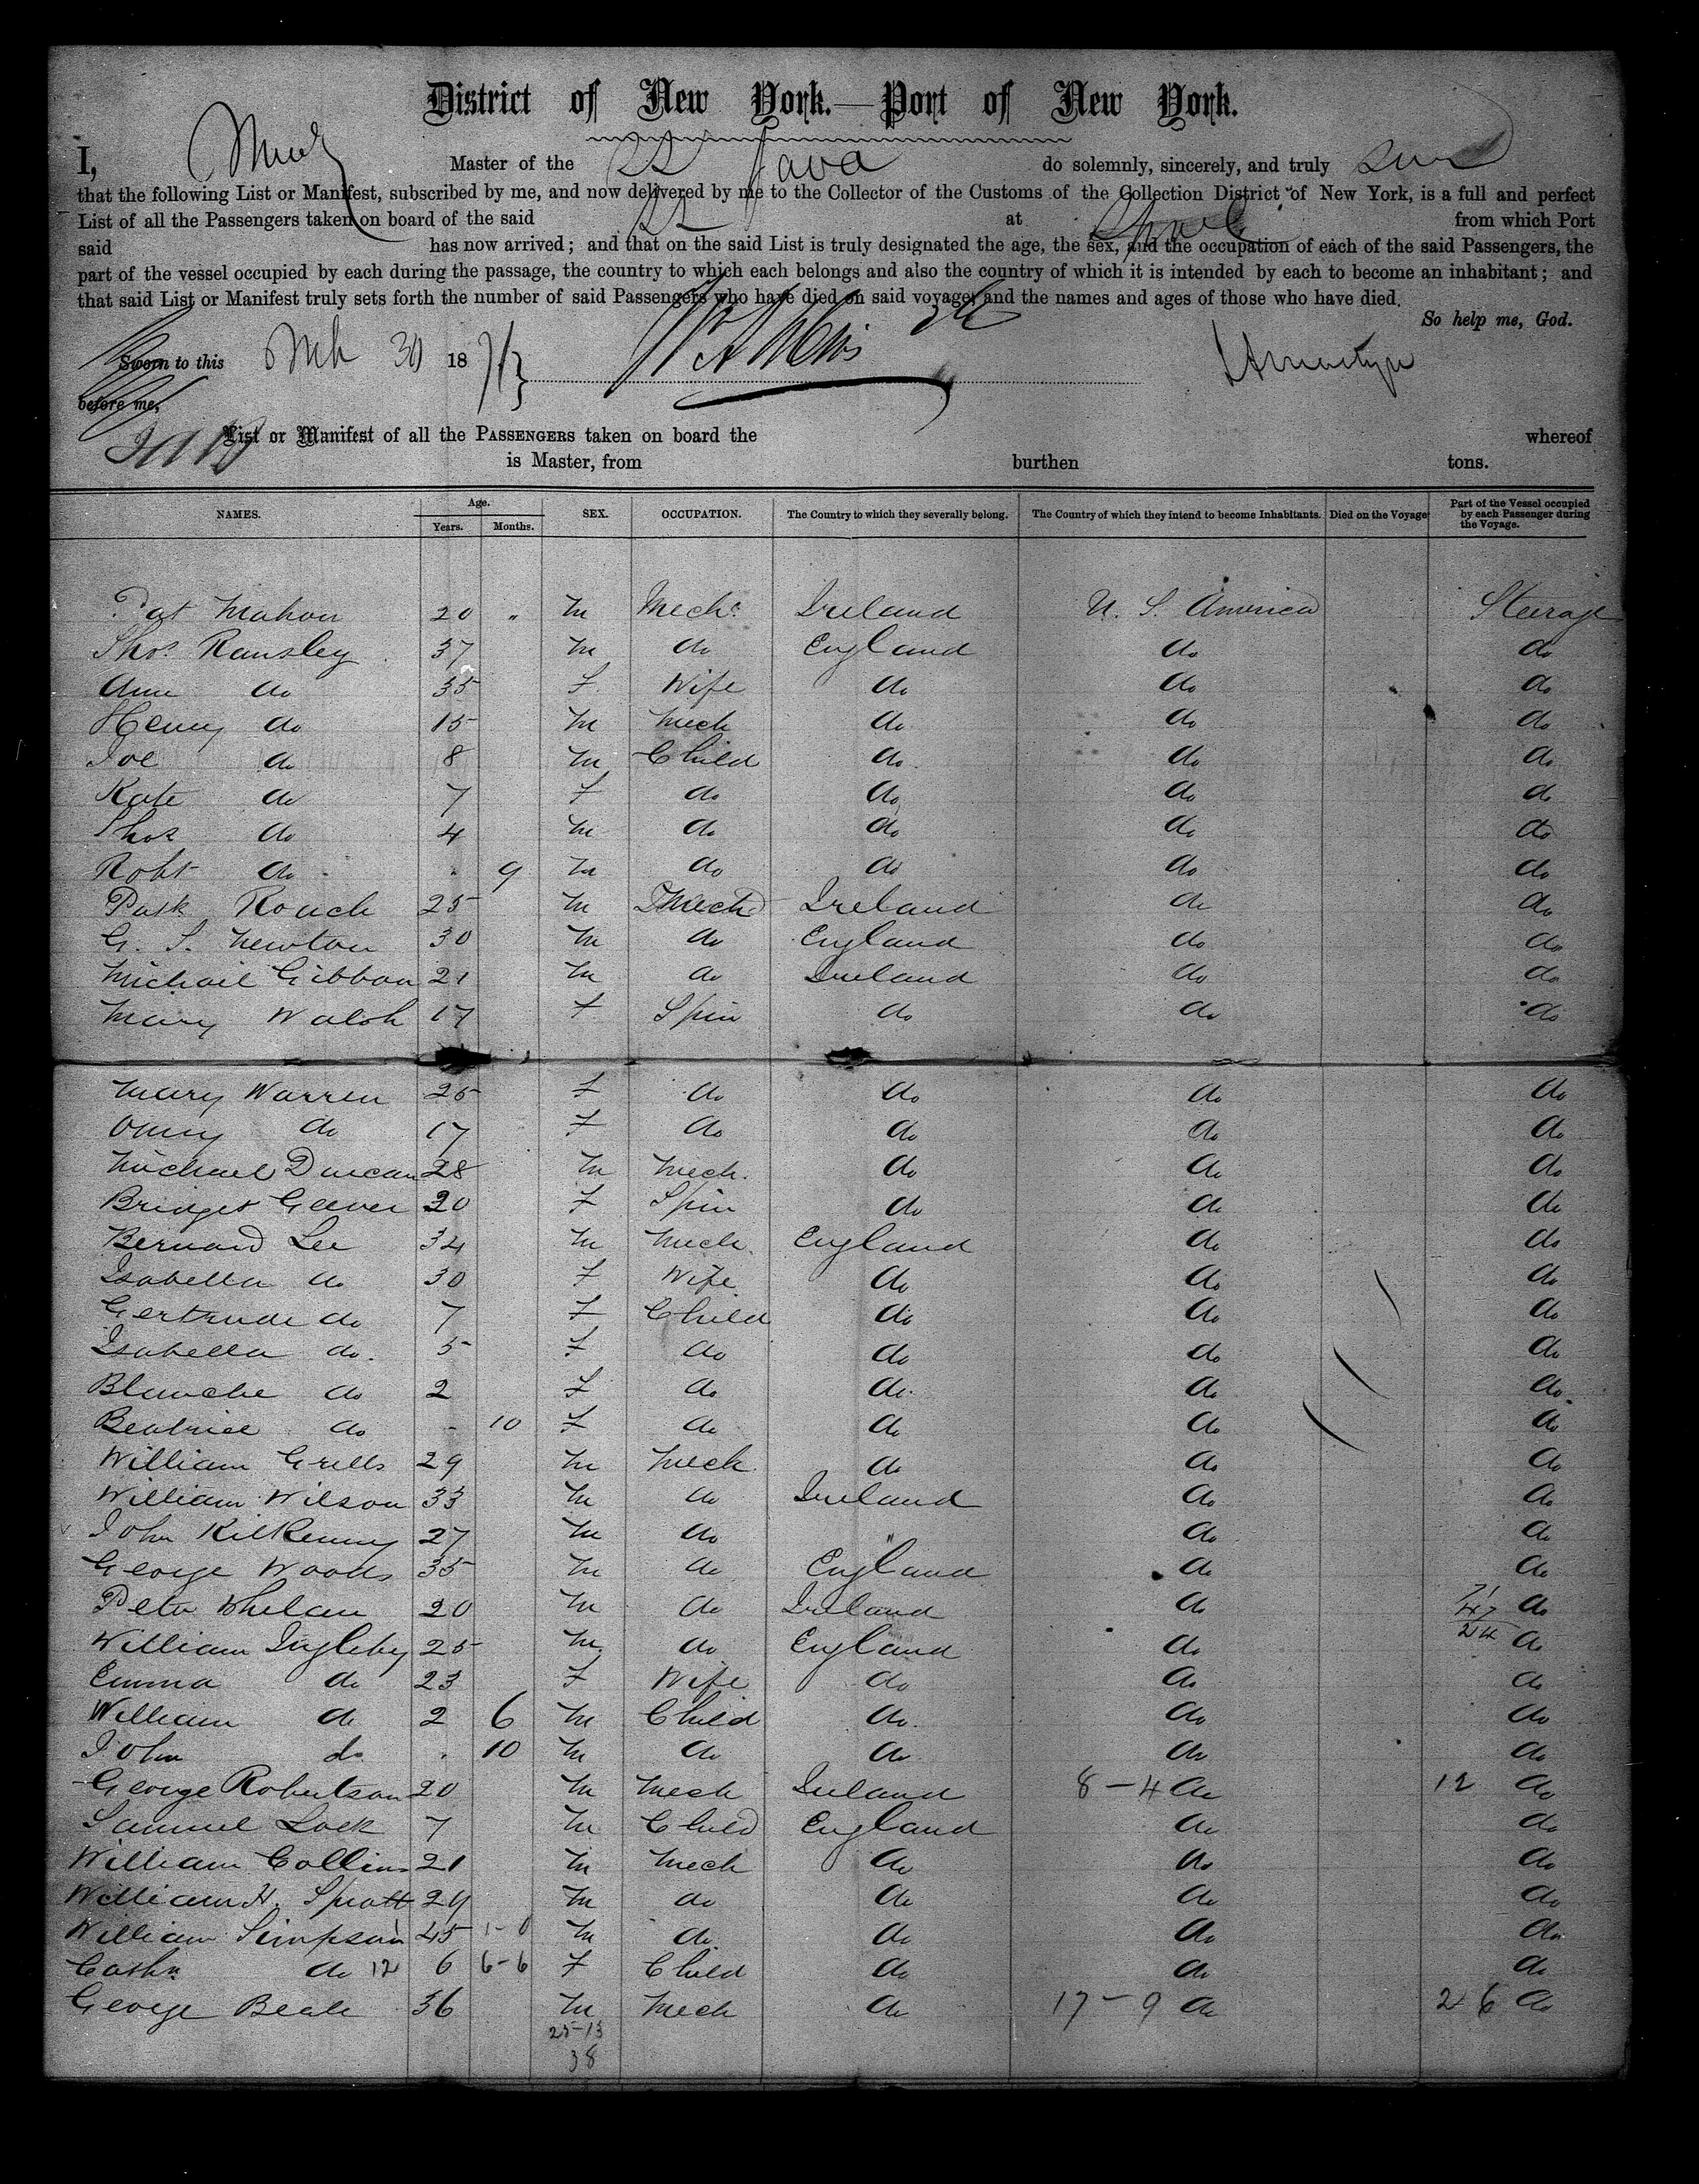 District of New York.—Port of New York.
I, Master of the SS Java do solemnly, sincerely, and truly
that the following List or Manifest, subscribed by me, and now delivered by me to the Collector of the Customs of the Collection District of New York, is a full and perfect
List of all the Passengers taken on board of the said SS at from which Port
said has now arrived; and that on the said List is truly designated the age, the sex, and the occupation of each of the said Passengers, the
part of the vessel occupied by each during the passage, the country to which each belongs and also the country of which it is intended by each to become an inhabitant; and
that said List or Manifest truly sets forth the number of said Passengers who have died on said voyage, and the names and ages of those who have died.
So help me, God.
Sworn to this Mch 30 18
before me,
List or Manifest of all the PASSENGERS taken on board the whereof
is Master, from burthen tons.
NAMES. Age. Years. Months. SEX. OCCUPATION. The Country to which they severally belong. The Country of which they intend to become Inhabitants. Died on the Voyage Part of the Vessel occupied by each Passenger during the Voyage.
Pat Mahon 20 " M Mech. Ireland U. S. America Steerage
Thos. Ransley 37 M do England do do
Ann do 35 F Wife do do do
Henry do 15 M Mech do do do
Joe do 8 M Child do do do
Kate do 7 F do do do do
Thos do 4 M do do do do
Robt do 9 M do do do do
Patk Roach 25 M Mech Ireland do do
G. S. Newton 30 M do England do do
Michail Gibbon 21 M do Ireland do do
Mary Walsh 17 F Spin do do do
Mary Warren 25 F do do do do
do 17 F do do do do
Michael Duncan 28 M Mech. do do do
Bridget Geever 20 F Spin do do do
Bernard Lee 34 M Mech. England do do
Isabella do 30 F Wife do do do
Gertrude do 7 F Child do do do
Isabella do. 5 F do do do do
Blanche do 2 F do do. do do
Beatrice do - 10 F do do do do
William Grills 29 M Mech. do do do
William Wilson 33 M do Ireland do do
John Kilkenny 27 M do " do do
George Woods 35 M do England do do
Peter Whelan 20 M do Ireland do 71 47 24 do
William Ingleby 25 M do England do do
Emma do 23 F Wife do do do
William do 2 6 M Child do. do do
John do . 10 M do do do do
George Robertson 20 M Mech Ireland 8-4 do 12 do
Samuel Lock 7 M Child England do do
William Collins 21 M Mech do do do
William H. Spratt 29 M do do do do
William Simpson 45 1-0 M do do do do
Cathn do 12 6 6-6 F Child do do do
George Beale 36 M Mech do 17-9 do 26 do
25-13
38